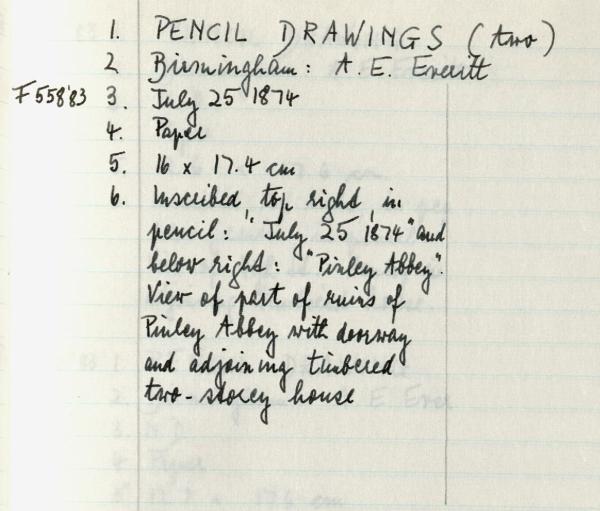 1. PENCIL DRAWINGS (two)
2 Birmingham: A. E. Everitt
F558'83 3. July 25 1874
4. Paper
5. 16 x 17.4 cm
6. Inscribed, top right, in
pencil: "July 25 1874" and
below right: "Pinley Abbey".
View of part of ruins of
Pinley Abbey with doorway
and adjoining timbered
two-storey house